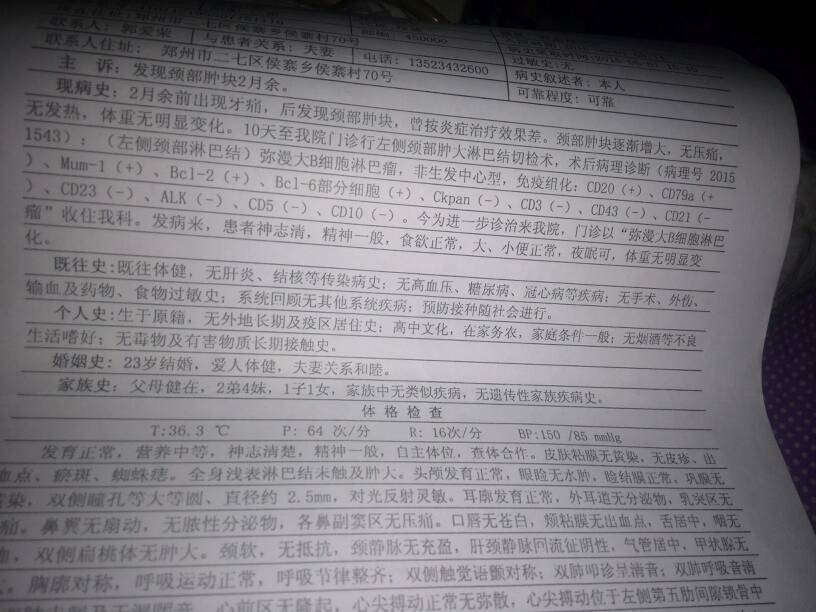 联系人: 郭爱荣 与患者关系: 夫妻 邮编: 450000
联系人住址: 郑州市二七区侯寨乡侯寨村70号 电话: 13523432600 过敏史:无
病史叙述者: 本人
主 诉: 发现颈部肿块2月余。 可靠程度: 可靠
现病史: 2月余前出现牙痛, 后发现颈部肿块, 曾按炎症治疗效果差。颈部肿块逐渐增大, 无压痛,
无发热, 体重无明显变化。10天至我院门诊行左侧颈部肿大淋巴结切检术, 术后病理诊断(病理号 2015
1543): (左侧颈部淋巴结)弥漫大B细胞淋巴瘤, 非生发中心型, 免疫组化: CD20(+)、CD79a(+
)、Mum-1(+)、Bcl-2(+)、Bcl-6部分细胞(+)、Ckpan(-)、CD3(-)、CD43(-)、CD21(-
)、CD23(-)、ALK(-)、CD5(-)、CD10(-)。今为进一步诊治来我院, 门诊以“弥漫大B细胞淋巴
瘤”收住我科。发病来, 患者神志清, 精神一般, 食欲正常, 大、小便正常, 夜眠可, 体重无明显变
化。
既往史:既往体健, 无肝炎、结核等传染病史; 无高血压、糖尿病、冠心病等疾病; 无手术、外伤、
输血及药物、食物过敏史; 系统回顾无其他系统疾病; 预防接种随社会进行。
个人史:生于原籍, 无外地长期及疫区居住史; 高中文化, 在家务农, 家庭条件一般; 无烟酒等不良
生活嗜好; 无毒物及有害物质长期接触史。
婚姻史: 23岁结婚, 爱人体健, 夫妻关系和睦。
家族史: 父母健在, 2弟4妹, 1子1女, 家族中无类似疾病, 无遗传性家族疾病史。
体 格 检 查
T:36.3 ℃ P: 64 次/分 R: 16次/分 BP:150 /85 mmHg
发育正常, 营养中等, 神志清楚, 精神一般, 自主体位, 查体合作。皮肤粘膜无黄染, 无皮疹、出
血点、瘀斑、蜘蛛痣。全身浅表淋巴结未触及肿大。头颅发育正常, 眼睑无水肿, 睑结膜正常, 巩膜无
黄染, 双侧瞳孔等大等圆、直径约 2.5mm, 对光反射灵敏。耳廓发育正常, 外耳道无分泌物, 乳突区无
痛。鼻翼无扇动, 无脓性分泌物, 各鼻副窦区无压痛。口唇无苍白, 颊粘膜无出血点, 舌居中, 咽无
血, 双侧扁桃体无肿大。颈软, 无抵抗, 颈静脉无充盈, 肝颈静脉回流征阴性, 气管居中, 甲状腺无
。胸廓对称, 呼吸运动正常, 呼吸节律整齐; 双侧触觉语颤对称; 双肺叩诊呈清音; 双肺呼吸音清
心前区无隆起, 心尖搏动正常无弥散, 心尖搏动位于左侧第五肋间隙锁骨中